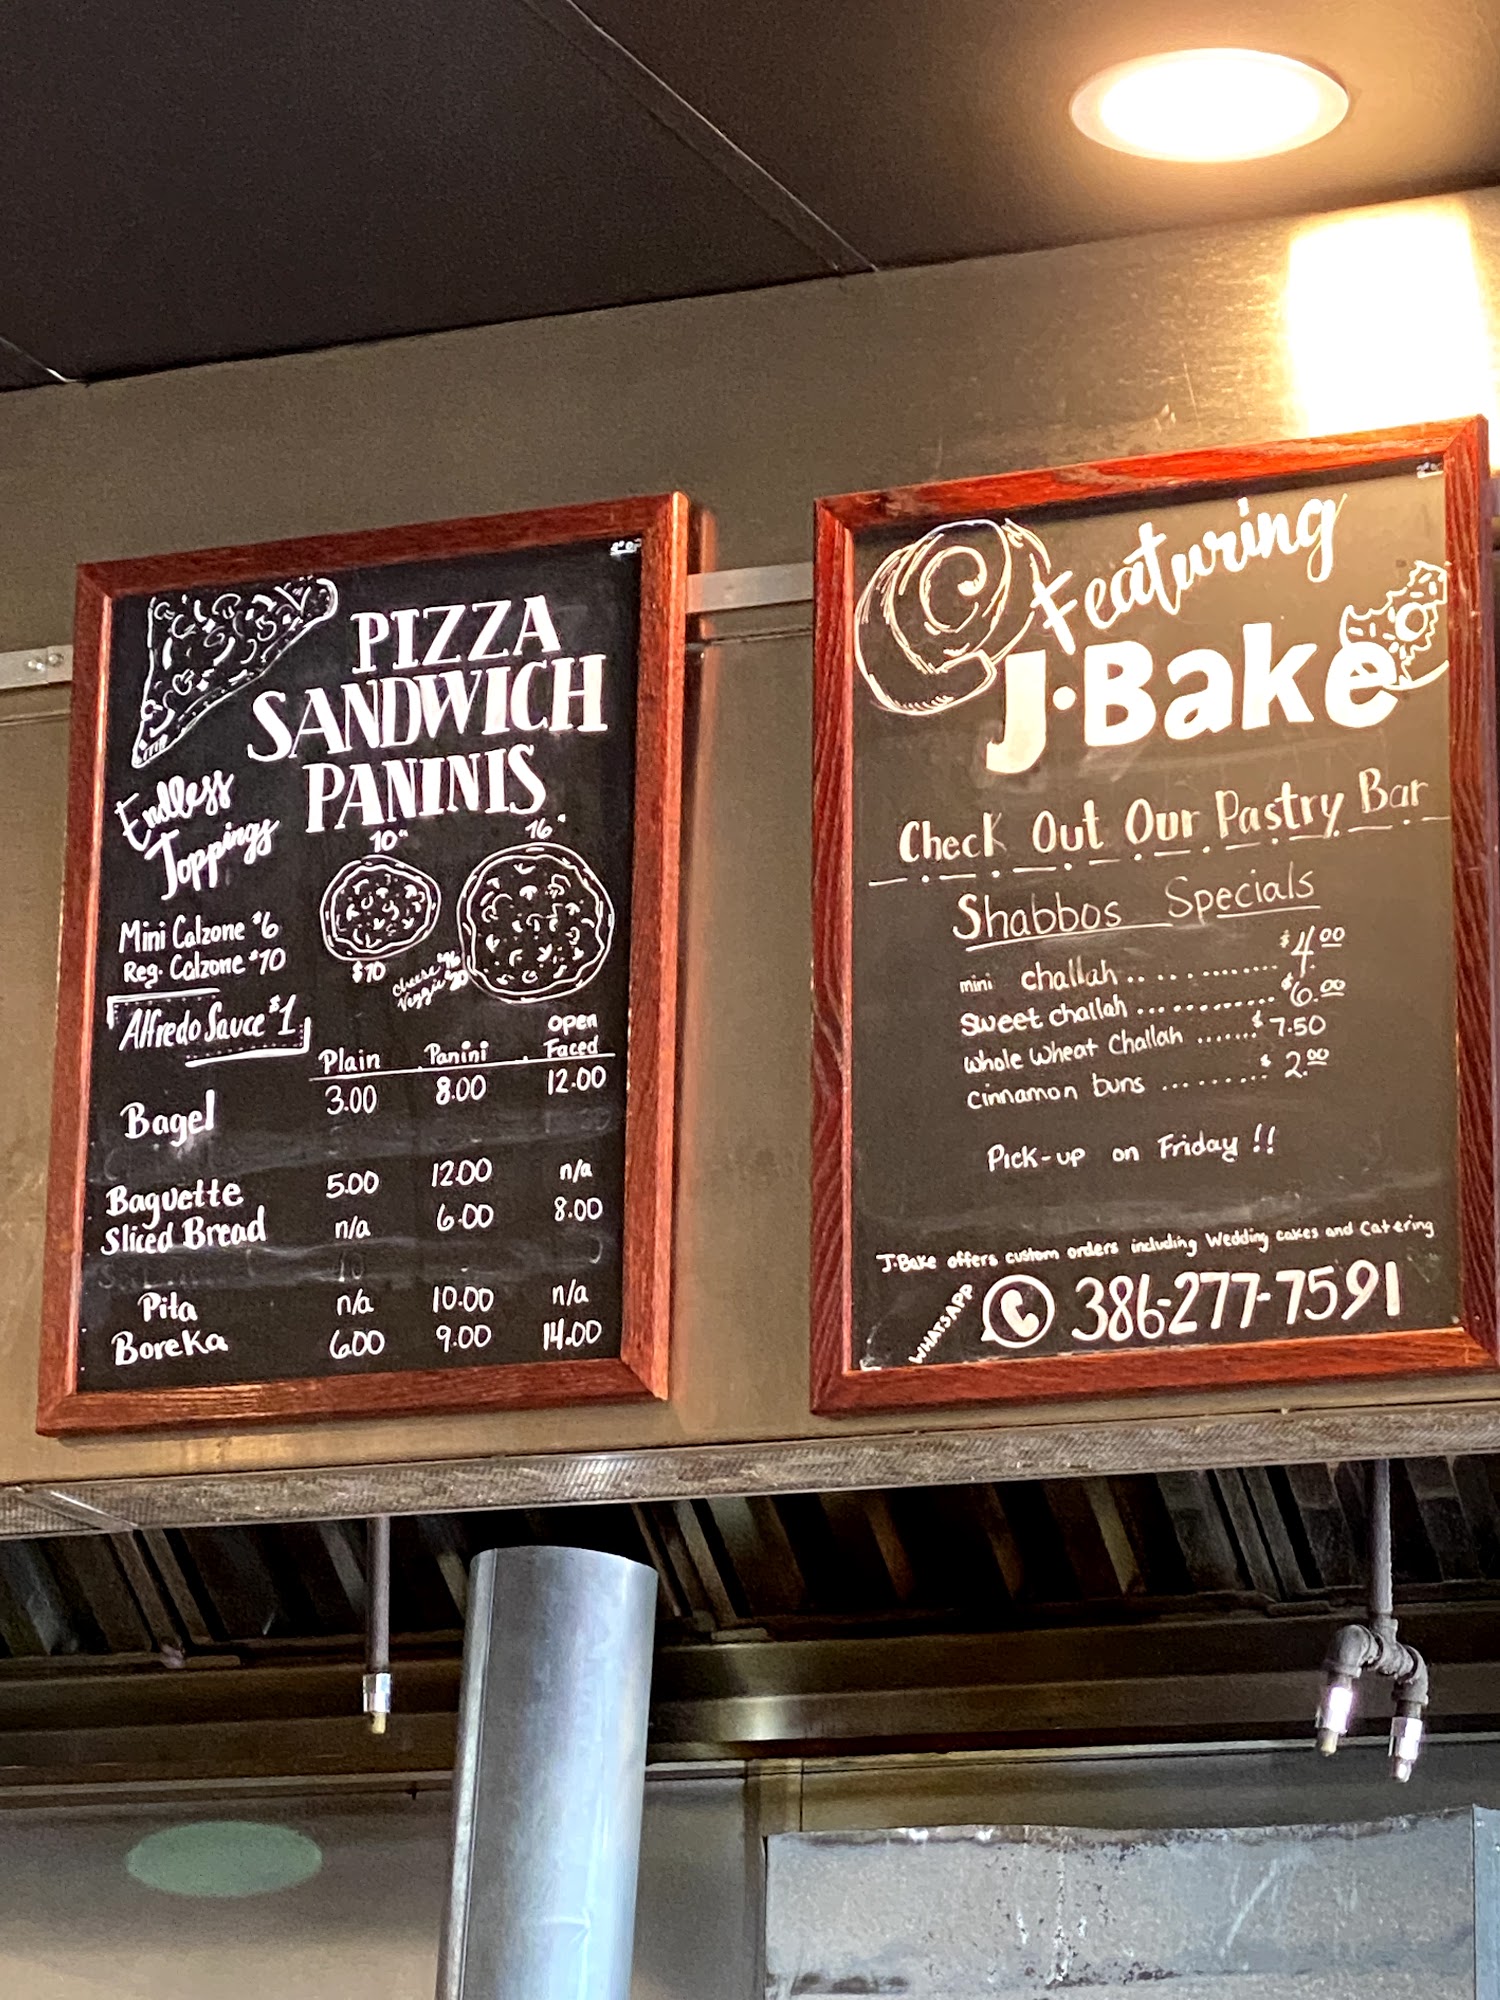 PIZZA
SANDWICH
PANINIS
Endless
Toppings
10"
16"
$10
Cheese $16
Veggie $20
Mini Calzone $6
Reg. Calzone $10
Alfredo Sauce $1
Plain Panini Open Faced
Bagel 3.00 8.00 12.00
Baguette 5.00 12.00 n/a
Sliced Bread n/a 6.00 8.00
Pita n/a 10.00 n/a
Boreka 6.00 9.00 14.00
Featuring
J.Bake
Check Out Our Pastry Bar
Shabbos Specials
mini challah .............. $4.00
Sweet challah ............ $6.00
Whole Wheat Challah ....... $7.50
Cinnamon buns .......... $2.00
Pick-up on Friday !!
J.Bake offers custom orders including Wedding cakes and Catering
WHATSAPP 386-277-7591